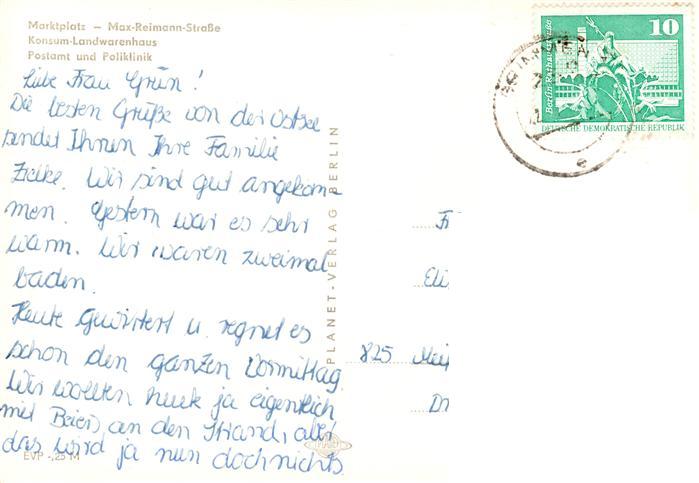 Marktplatz – Max-Reimann-Straße
Konsum-Landwarenhaus
Postamt und Poliklinik
Liebe Frau Grün!
Die besten Grüße von der Ostsee
sendet Ihnen Ihre Familie
Zicke. Wir sind gut angekom-
men. Gestern war es sehr
warm. Wir waren zweimal
baden.
Heute gewittert u. regnet es
schon den ganzen Vormittag.
Wir wollten heute ja eigentlich
mit Beiers an den Strand, aber
das wird ja nun doch nichts.
EVP -,25 M
PLANET-VERLAG BERLIN
10
Berlin, Rathausstraße
DEUTSCHE DEMOKRATISCHE REPUBLIK
e
825 Mei